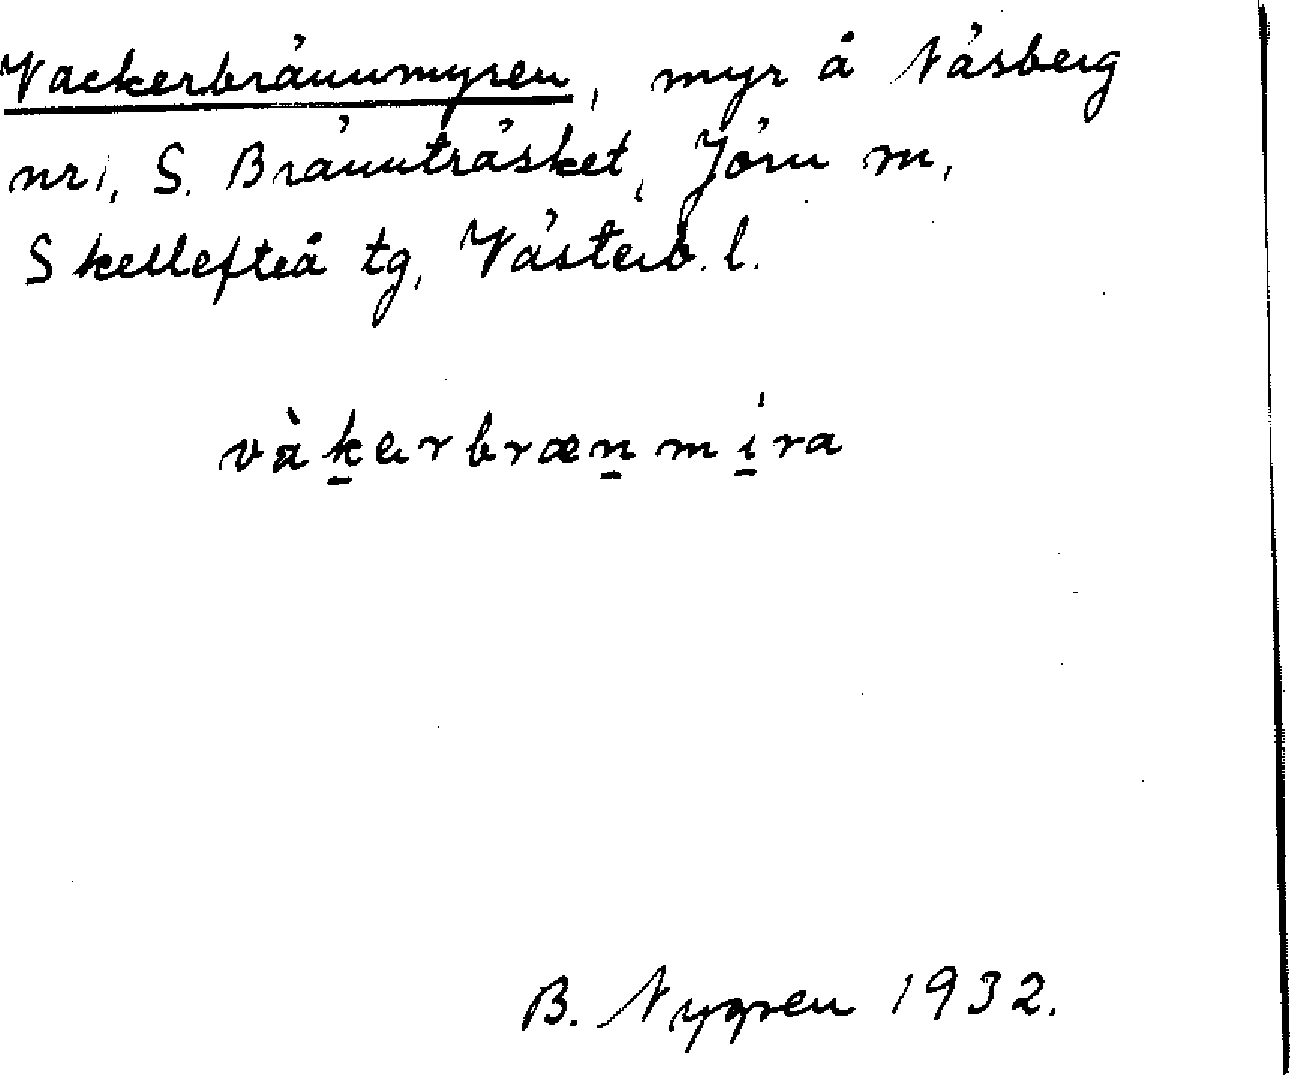 Vackerbrännmyren, myr å Näsberg
nr 1, S. Brännträsket, Jörn sn,
Skellefteå tg, Västerb. l.
vàkerbrænmíra
B. Nygren 1932.